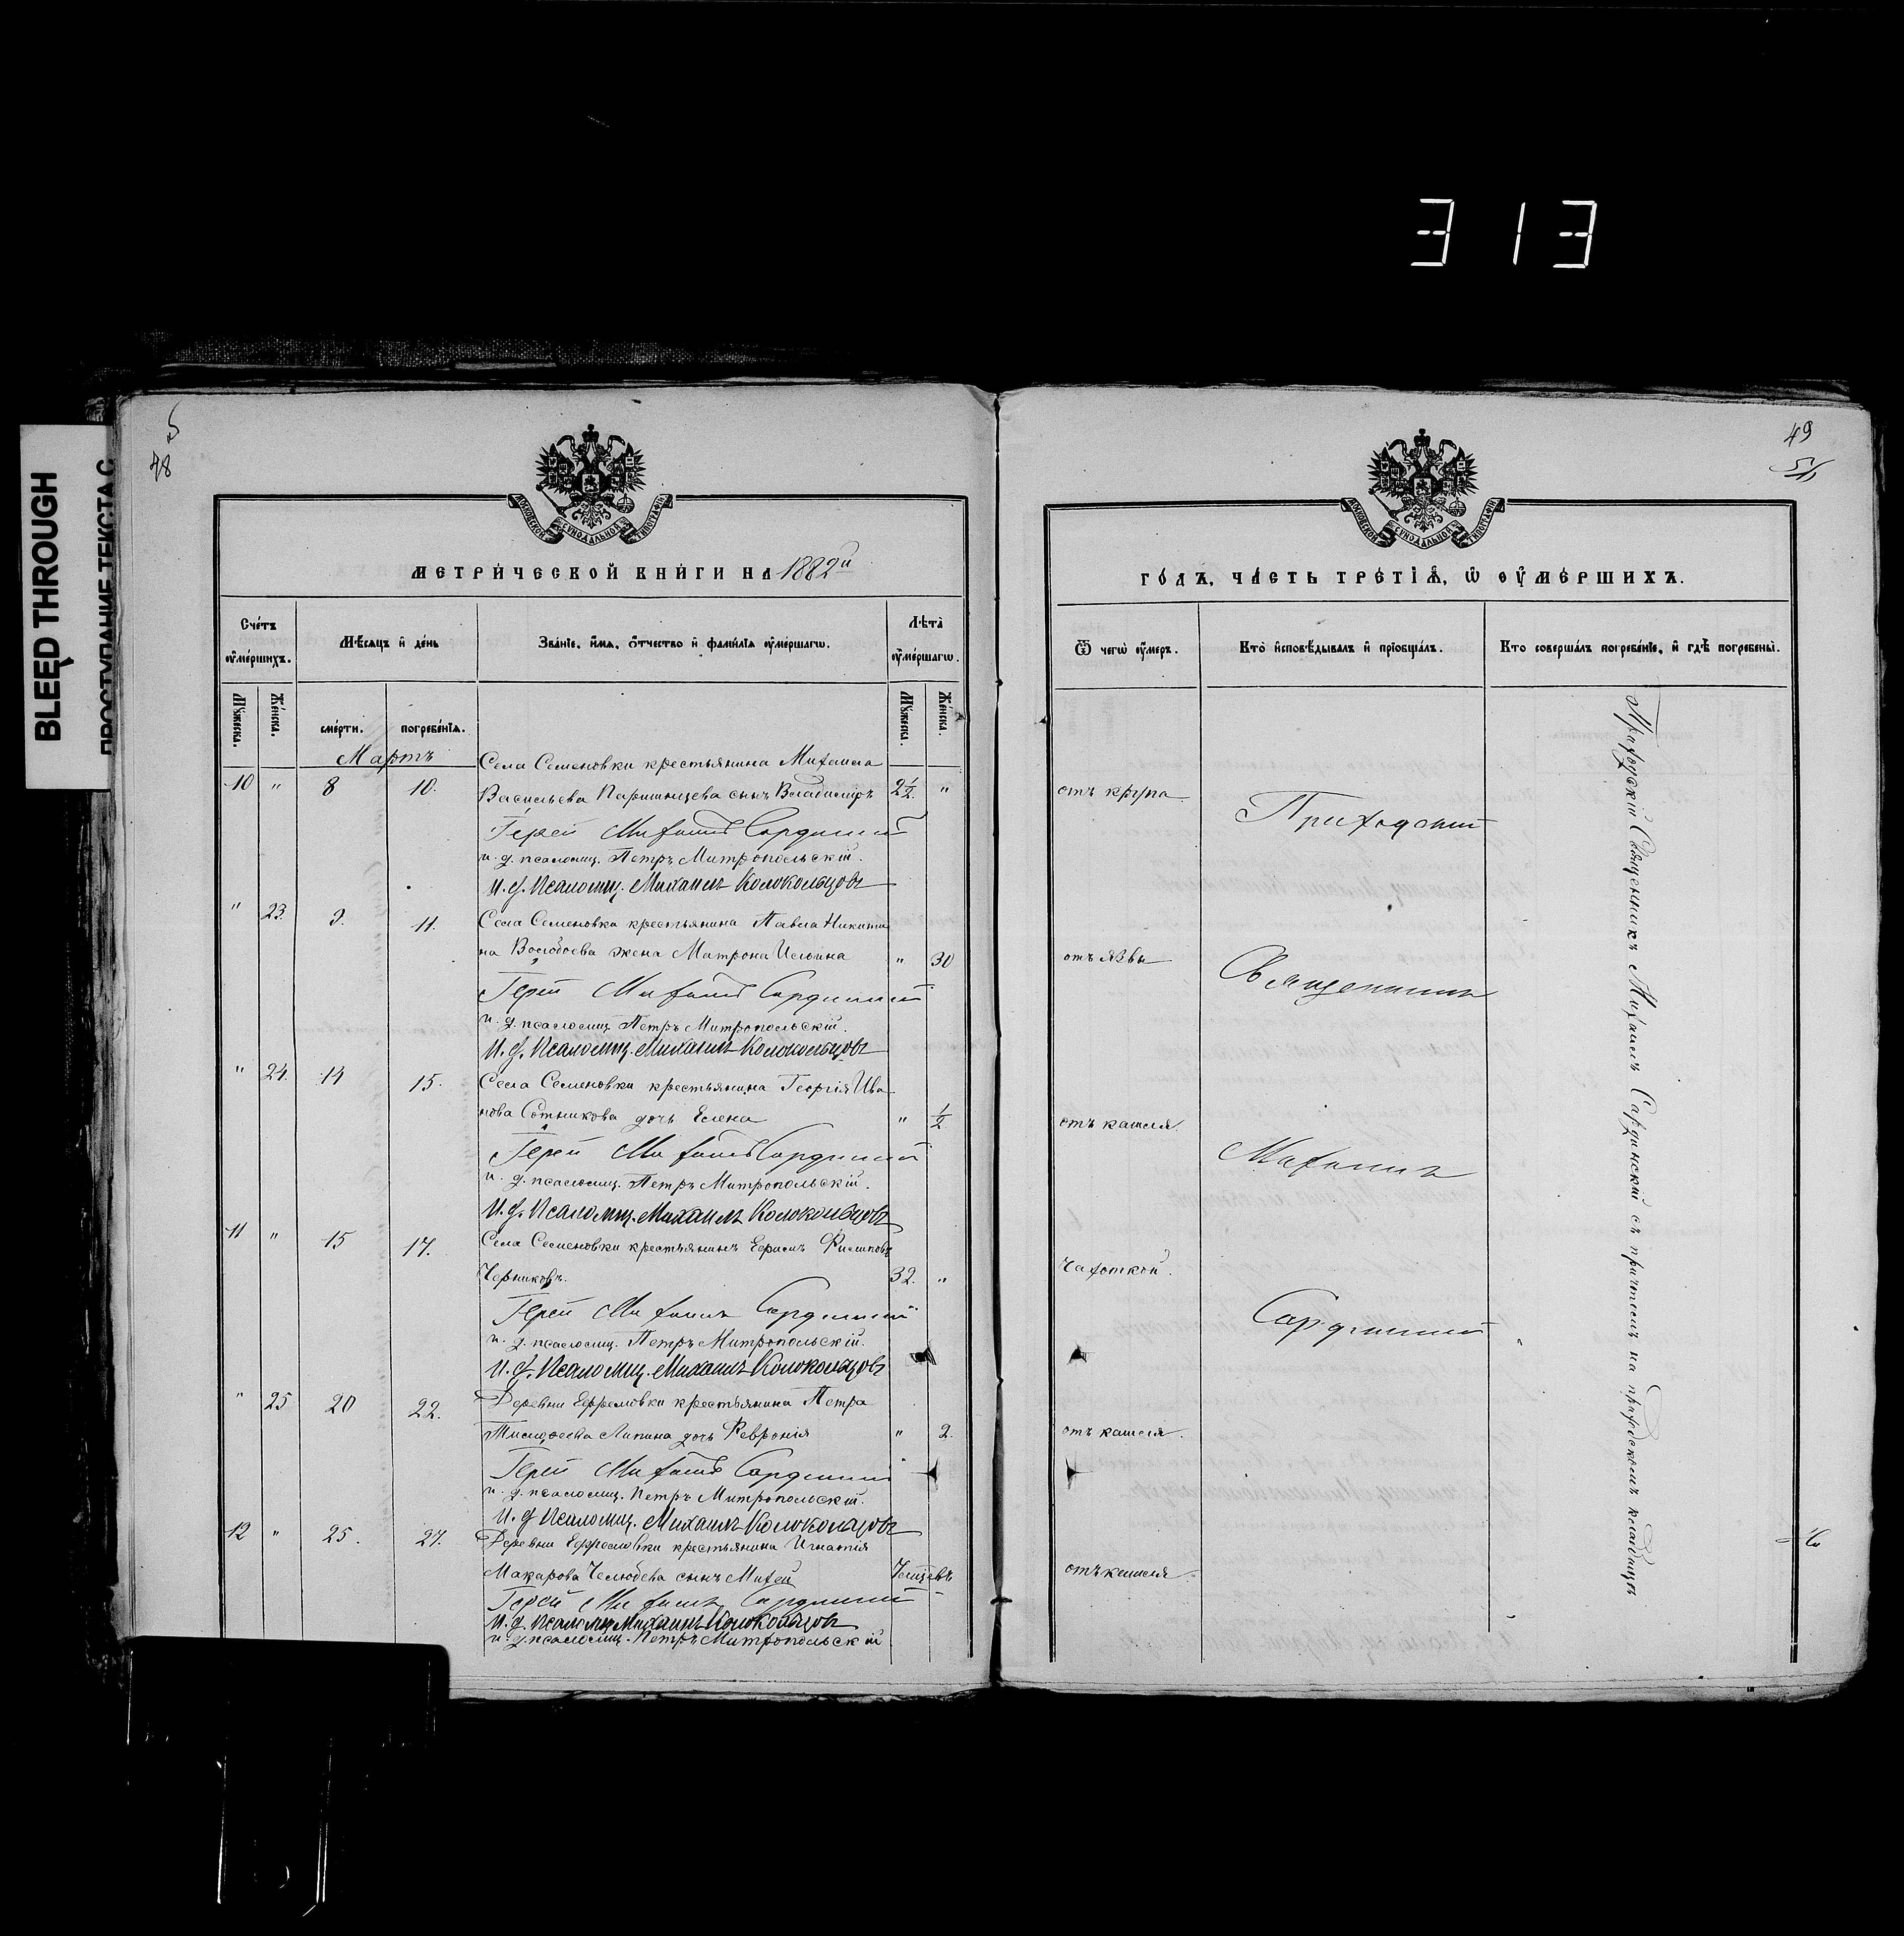 313
BLEED THROUGH
ПРОСТУПАНИЕ ТЕКСТА С
48
МОСКОВСКОЙ СѴНОДАЛЬНОЙ ТИПОГРАФІИ
МЕТРИ́ЧЕСКОЙ КНИ́ГИ НА 1882й
Сче́тъ ᲂу҆ме́ршихъ.
Мѣ́сѧцъ и҆ де́нь
Зва́нїе, и҆́мѧ, ѻ҆́тчество и҆ фами́лїѧ ᲂу҆ме́ршагѡ.
Лѣ́та ᲂу҆ме́ршагѡ.
Мꙋ́жеска.
Же́нска.
сме́рти.
погребе́нїѧ.
Мꙋ́жеска.
Же́нска.
Мартъ
Села Семеновки крестьянина Михаила
10 " 8 10. Васильева сынъ Владиміръ 2½. "
Іерей Михаилъ Сардинскій
и. д. псаломщ. Петръ Митропольскій.
И. д. Псаломщ. Михаилъ Колокольцовъ
" 23. 9. 11. Села Семеновки крестьянина Павла Никити
на жена Матрона Ильина " 30
Іерей Михаилъ Сардинскій
и. д. псаломщ. Петръ Митропольскій.
И. д. Псаломщ. Михаилъ Колокольцовъ
" 24. 14 15. Села Семеновки крестьянина Георгія Ива
нова Сотникова дочь Елена " ½
Іерей Михаилъ Сардинскій
и. д. псаломщ. Петръ Митропольскій.
И. д. Псаломщ. Михаилъ Колокольцовъ
11 " 15 17. Села Семеновки крестьянинъ Ефимъ Филиповъ
Черниковъ. 32. "
Іерей Михаилъ Сардинскій
и. д. псаломщ. Петръ Митропольскій.
И. д. Псаломщ. Михаилъ Колокольцовъ
" 25 20 22. Деревни Ефремовки крестьянина Петра
Тимофеева Лапина дочь Февронія " 2.
Іерей Михаилъ Сардинскій
и. д. псаломщ. Петръ Митропольскій.
И. д Псаломщ. Михаилъ Колокольцовъ
12 " 25. 27. Деревни Ефремовки крестьянина Игнатія
Макарова Челюбева сынъ Михей
Іерей Михаилъ Сардинскій
И. д. Псаломщ Михаилъ Колокольцовъ
и. д. псаломщ. Петръ Митропольскій
49
МОСКОВСКОЙ СѴНОДАЛЬНОЙ ТИПОГРАФІИ
ГО́ДЪ, ЧА́СТЬ ТРЕ́ТЇѦ, Ѡ҆ ᲂУ҆МЕ́РШИХЪ.
Ѿ чегѡ̀ ᲂу҆́меръ.
Кто̀ и҆сповѣ́дывалъ и҆ прїѡбща́лъ.
Кто соверша́лъ погребе́нїе, и҆ гдѣ̀ погребены̀.
отъ крупа.
отъ язвы
отъ кашля.
Чахоткой.
отъ кашля.
отъ кашля.
Приходскій
Священникъ
Михаилъ
Сардинскій
Приходскій Священникъ Михаилъ Сардинскій съ причтомъ на приходскомъ кладбищѣ